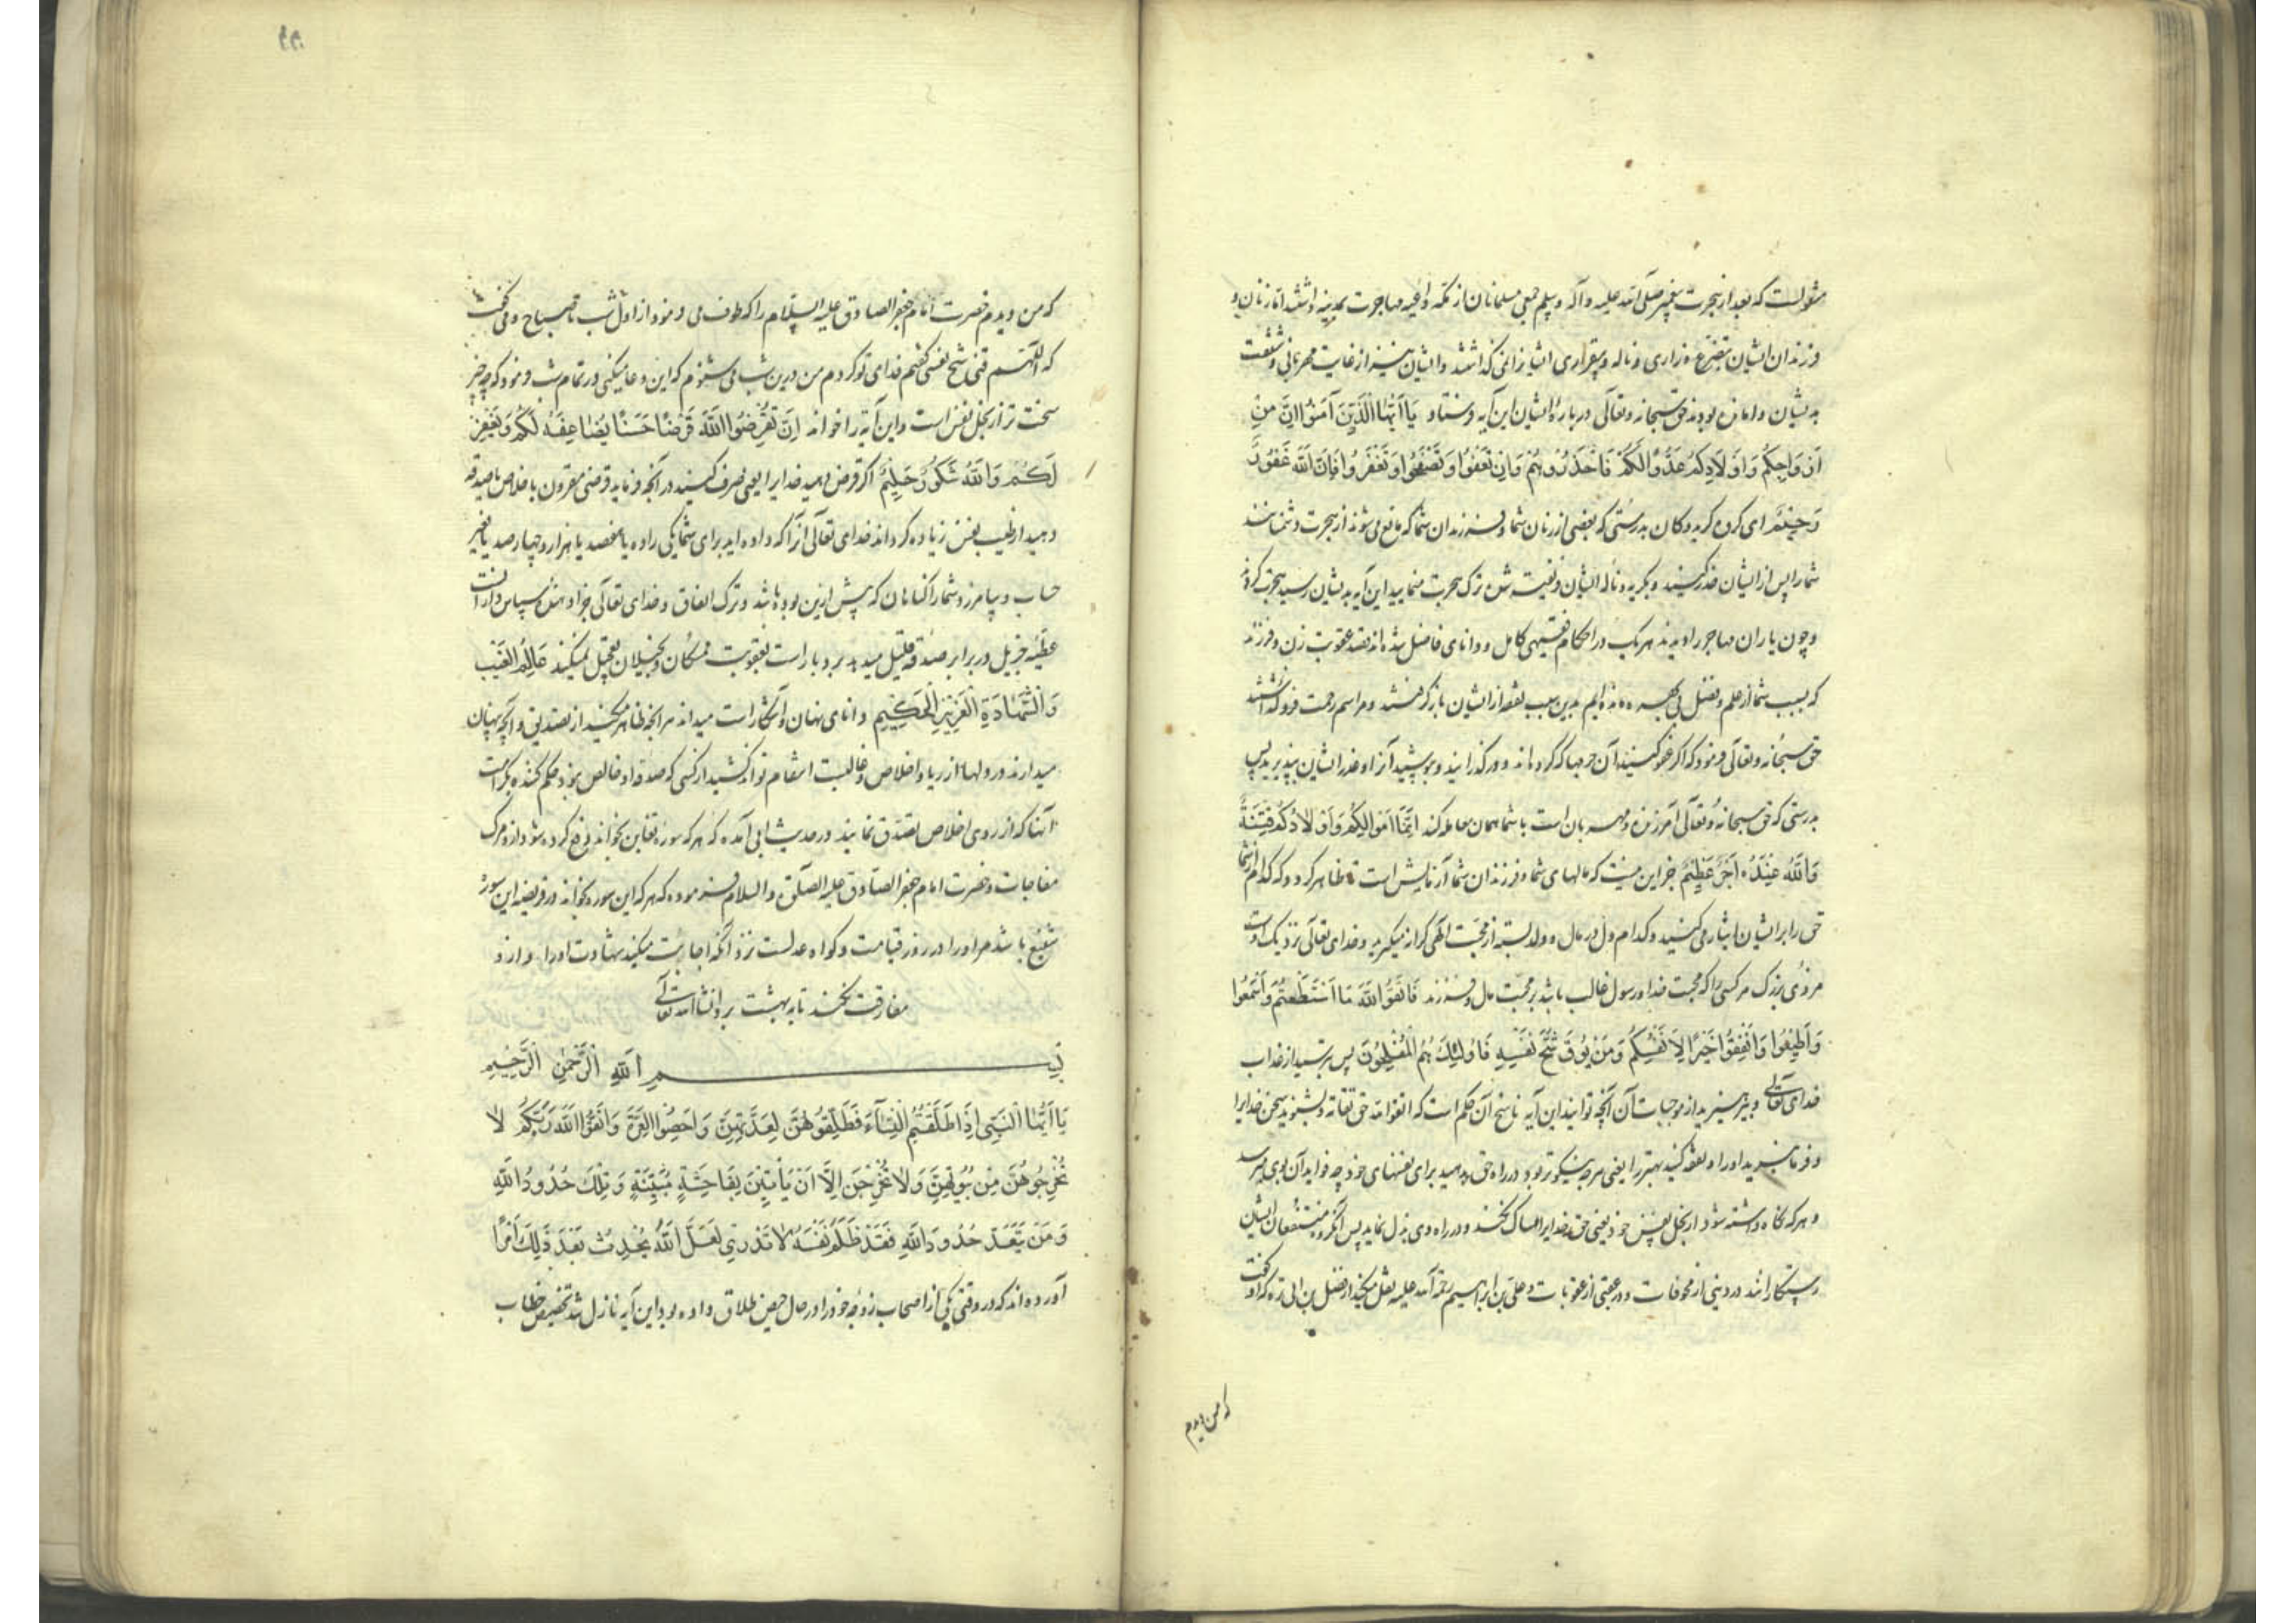 منقولست که بعد از هجرت پیغمبر صلی الله علیه و آله و سلم جمعی مسلمانان از مکه داعیه مهاجرت بمدینه داشتند اما زنان و
فرزندان ایشان بتضرع و زاری و ناله و بیقراری ایشانرا نمی گذاشتند و ایشان نیز از غایت مهربانی و شفقت
بدیشان وامانده بودند حق سبحانه و تعالی درباره ایشان این آیه فرستاد یَا اَیُّهَا الَّذِیْنَ آمَنُوا اِنَّ مِنْ
اَزْوَاجِکُمْ وَاَوْلَادِکُمْ عَدُوًّا لَکُمْ فَاحْذَرُوهُمْ وَاِنْ تَعْفُوْا وَتَصْفَحُوا وَتَغْفِرُوا فَاِنَّ اللّٰهَ غَفُوْرٌ
رَحِیْمٌ ای گروه گرویدگان بدرستی که بعضی از زنان شما و فرزندان شما که مانع می شوند از هجرت دشمنانند
شما را پس از ایشان حذر کنید و بگریه و ناله ایشان فریفته شده ترک هجرت منمایید این آیه بدیشان رسید هجرت کردند
و چون یاران مهاجر را دیدند هر یک در احکام فقیهی کامل و دانای فاضل شده اند قصد عقوبت زن و فرزند
که بسبب شما از علم و فضل بی بهره مانده ایم بدین سبب نفقه از ایشان باز گرفتند و مراسم رحمت فرو گذاشتند
حق سبحانه و تعالی فرمود که اگر عفو کنید آن جرمها که کرده اند و درگذرانید و بپوشید آنرا و عذر ایشان بپذیرید پس
بدرستی که حق سبحانه و تعالی آمرزنده و مهربان است با شما همان معامله کند اِنَّمَا اَمْوَالُکُمْ وَاَوْلَادُکُمْ فِتْنَةٌ
وَاللّٰهُ عِنْدَهُ اَجْرٌ عَظِیْمٌ جز این نیست که مالهای شما و فرزندان شما آزمایش است تا ظاهر گردد که کدام از شما
حق را بر ایشان ایثار می کنید و کدام دل در مال و ولد بسته از محبت الهی کرانه میگیرید و خدای تعالی نزدیک اوست
مزدی بزرگ مر کسی را که محبت خدا و رسول غالب باشد بر محبت مال و فرزند فَاتَّقُوا اللّٰهَ مَا اسْتَطَعْتُمْ وَاسْمَعُوا
وَاَطِیْعُوا وَاَنْفِقُوا خَیْرًا لِاَنْفُسِکُمْ وَمَنْ یُوْقَ شُحَّ نَفْسِهِ فَاُولٰئِکَ هُمُ الْمُفْلِحُوْنَ پس بترسید از عذاب
خدای تعالی و بپرهیزید از موجبات آن آنچه توانید این آیه ناسخ آن حکم است که اتقوا الله حق تقاته و بشنوید سخن خدا را
و فرمان برید او را و نفقه کنید بهتر را یعنی هر چه نیکوتر بود در راه حق بدهید برای نفسهای خود چه فواید آن بوی میرسد
و هر که نگاه داشته شود از بخل نفس خود یعنی حق خدا را امساک نکند و در راه وی بذل نماید پس آنگروه منفقان ایشان
رستگارانند در دنیی از مخوفات و در عقبی از عقوبات و علی بن ابراهیم رحمة الله علیه نقل میکند از فضل بن ابی قره که او گفت
که من دیدم
که من دیدم حضرت امام جعفر الصادق علیه السلام را که طواف می فرمود از اول شب تا صباح و می گفت
که اللّهم قنی شح نفسی گفتم فدای تو گردم من درین شب می شنوم که این دعا میکنی در تمام شب فرمود که چه چیز
سخت تر از بخل نفس است و این آیه را خواند اِنْ تُقْرِضُوا اللّٰهَ قَرْضًا حَسَنًا یُضَاعِفْهُ لَکُمْ وَیَغْفِرْ
لَکُمْ وَاللّٰهُ شَکُوْرٌ حَلِیْمٌ اگر قرض دهید خدا را یعنی صرف کنید در آنچه فرماید قرضی مقرون باخلاص یا صدقه
دهید از طیب نفس زیاده گرداند خدای تعالی آنرا که داده اید برای شما یکی را ده یا هفصد یا هزار و چهارصد یا بغیر
حساب و بیامرزد شما را گناهان که پیش ازین بوده باشد و ترک انفاق و خدای تعالی جزا دهنده سپاس دارانست
عطیه جزیل در برابر صدقه قلیل میدهد بردبار است بعقوبت ممسکان و بخیلان تعجیل نمیکند عَالِمُ الْغَیْبِ
وَالشَّهَادَةِ الْعَزِیْزُ الْحَکِیْمُ دانای نهان و آشکار است میداند هر آنچه ظاهر میکنید از تصدیق و آنچه پنهان
میدارند در دلها از ریا و اخلاص و غالبست انتقام تواند کشید از کسی که صدقه او خالص نبود حکم کننده بکرامت
آنها که از روی اخلاص تصدق نمایند در حدیث ابی آمده که هر که سوره تغابن بخواند دفع کرده شود ازو مرگ
مفاجات و حضرت امام جعفر الصادق علیه الصلوة والسلام فرموده که هر که این سوره بخواند در فریضه این سوره
شفیع باشد مر او را در روز قیامت و گواه عدلست نزد آنکه اجابت میکند شهادت او را و ازو
مفارقت نکند تا به بهشت برد انشاالله تعالی
بِسْمِ اللّٰهِ الرَّحْمٰنِ الرَّحِیْمِ
یَا اَیُّهَا النَّبِیُّ اِذَا طَلَّقْتُمُ النِّسَآءَ فَطَلِّقُوْهُنَّ لِعِدَّتِهِنَّ وَاَحْصُوا الْعِدَّةَ وَاتَّقُوا اللّٰهَ رَبَّکُمْ لَا
تُخْرِجُوْهُنَّ مِنْ بُیُوْتِهِنَّ وَلَا یَخْرُجْنَ اِلَّا اَنْ یَأْتِیْنَ بِفَاحِشَةٍ مُبَیِّنَةٍ وَتِلْکَ حُدُوْدُ اللّٰهِ
وَمَنْ یَتَعَدَّ حُدُوْدَ اللّٰهِ فَقَدْ ظَلَمَ نَفْسَهُ لَا تَدْرِیْ لَعَلَّ اللّٰهَ یُحْدِثُ بَعْدَ ذٰلِکَ اَمْرًا
آورده اند که در وقتی یکی از اصحاب زوجه خود را در حال حیض طلاق داده بود این آیه نازل شد تخصیص خطاب